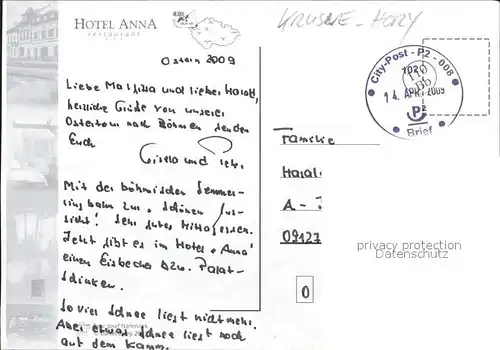 HOTEL ANNA
restaurant
KRUSNE - HORY
Ostern 2009
Liebe Mathilda und lieber Harald,
herzliche Grüße von unserer
Ostertour nach Böhmen senden
Euch
Gisela und Peter
Mit der böhmischen Semmer-
ingbahn zur "Schönen Aus-
sicht! Sehr gutes Mittagessen.
Jetzt gibt es im Hotel "Anna"
einen Eisbecher bzw. Palat-
schinken.
So viel Schnee liegt nicht mehr.
Aber etwas Schnee liegt noch
auf dem Kamm.
City-Post - P2 - 008
1020
14. APR. 2009
P2
Brief
Familie
Haral
A -
09127
0
privacy protection
Datenschutz